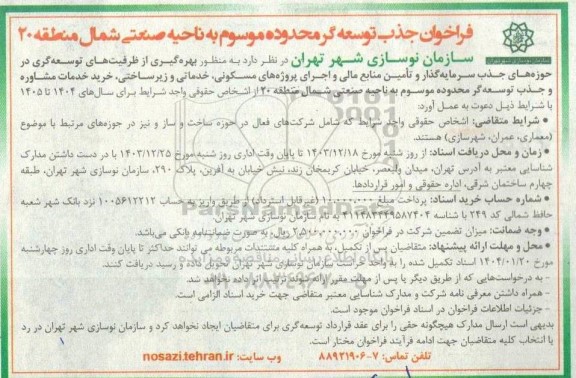 فراخوان جذب توسعه گر محدوده موسوم به ناحیه صنعتی شمال منطقه ۲۰
سازمان نوسازی شهر تهران در نظر دارد به منظور بهره‌گیری از ظرفیت‌های توسعه‌گری در
حوزه‌های جذب سرمایه‌گذار و تأمین منابع مالی و اجرای پروژه‌های مسکونی، خدماتی و زیرساختی، خرید خدمات مشاوره
و جذب توسعه‌گر محدوده موسوم به ناحیه صنعتی شمال منطقه ۲۰ از اشخاص حقوقی واجد شرایط برای سال‌های ۱۴۰۴ تا ۱۴۰۵
با شرایط ذیل دعوت به عمل آورد:
• شرایط متقاضی: اشخاص حقوقی واجد شرایط که شامل شرکت‌های فعال در حوزه ساخت و ساز و نیز در حوزه‌های مرتبط با موضوع
(معماری، عمران، شهرسازی) هستند.
• زمان و محل دریافت اسناد: از روز شنبه مورخ ۱۴۰۳/۱۲/۱۸ تا پایان وقت اداری روز شنبه مورخ ۱۴۰۳/۱۲/۲۵ با در دست داشتن مدارک
شناسایی معتبر به آدرس تهران، میدان ولیعصر، خیابان کریمخان زند، نبش خیابان به آفرین، پلاک ۲۹۰، سازمان نوسازی شهر تهران، طبقه
چهارم ساختمان شرقی، اداره حقوقی و امور قراردادها.
• شماره حساب خرید اسناد: پرداخت مبلغ (غیر قابل استرداد) از طریق واریز به حساب ۱۰۰۵۶۱۲۲۱۲ نزد بانک شهر شعبه
حافظ شمالی کد ۲۴۹ با شناسه به نام سازمان نوسازی شهر تهران.
• وجه ضمانت: میزان تضمین شرکت در فراخوان ریال، به صورت ضمانتنامه بانکی می‌باشد.
• محل و مهلت ارائه پیشنهاد: متقاضیان پس از تکمیل، به همراه کلیه مستندات مربوطه می توانند حداکثر تا پایان وقت اداری روز چهارشنبه
مورخ ۱۴۰۴/۰۱/۲۰ اسناد تکمیل شده را به واحد حراست سازمان نوسازی شهر تهران تحویل داده و رسید دریافت کنند.
- به درخواست‌هایی که از طریق دیگر یا پس از مهلت مقرر ارائه شود ترتیب اثر داده نخواهد شد.
- همراه داشتن معرفی نامه شرکت و مدارک شناسایی معتبر متقاضی جهت خرید اسناد الزامی است.
- جزئیات اطلاعات فراخوان در اسناد فراخوان موجود است.
بدیهی است ارسال مدارک هیچگونه حقی را برای عقد قرارداد توسعه‌گری برای متقاضیان ایجاد نخواهد کرد و سازمان نوسازی شهر تهران در رد
یا انتخاب کلیه متقاضیان جهت ادامه فرآیند فراخوان مختار است.
تلفن تماس: ۷-۸۸۹۲۱۹۰۶ وب سایت: nosazi.tehran.ir